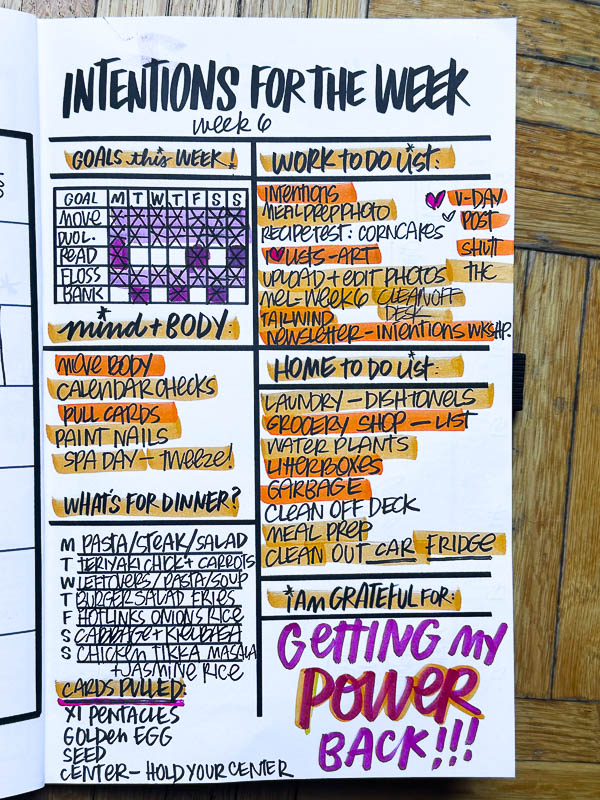 INTENTIONS FOR THE WEEK
week 6
GOALS this WEEK!
GOAL M T W T F S S
MOVE
DUOL.
READ
FLOSS
BANK
mind + BODY:
MOVE BODY
CALENDAR CHECKS
PULL CARDS
PAINT NAILS
SPA DAY - TWEEZE!
WHAT'S FOR DINNER?
M PASTA/STEAK/SALAD
T TERIYAKI CHICK + CARROTS
W LEFTOVERS/PASTA/SOUP
T BURGER SALAD FRIES
F HOTLINKS ONIONS RICE
S CABBAGE + KIELBASA
S CHICKEN TIKKA MASALA
+ JASMINE RICE
CARDS PULLED:
XI PENTACLES
GOLDEN EGG
SEED
CENTER - HOLD YOUR CENTER
WORK TO DO LIST:
INTENTIONS
MEAL PREP PHOTO
RECIPE TEST: CORNCAKES
I ♥ LISTS - ART
UPLOAD + EDIT PHOTOS
MEL - WEEK 6
CLEAN OFF
DESK
TAILWIND
NEWSLETTER - INTENTIONS WKSHP.
♥ V-DAY
✓ POST
SHUTT
THC
HOME TO DO LIST:
LAUNDRY - DISHTOWELS
GROCERY SHOP - LIST
WATER PLANTS
LITTERBOXES
GARBAGE
CLEAN OFF DECK
MEAL PREP
CLEAN OUT CAR FRIDGE
i AM GRATEFUL FOR:
GETTING MY
POWER
BACK!!!